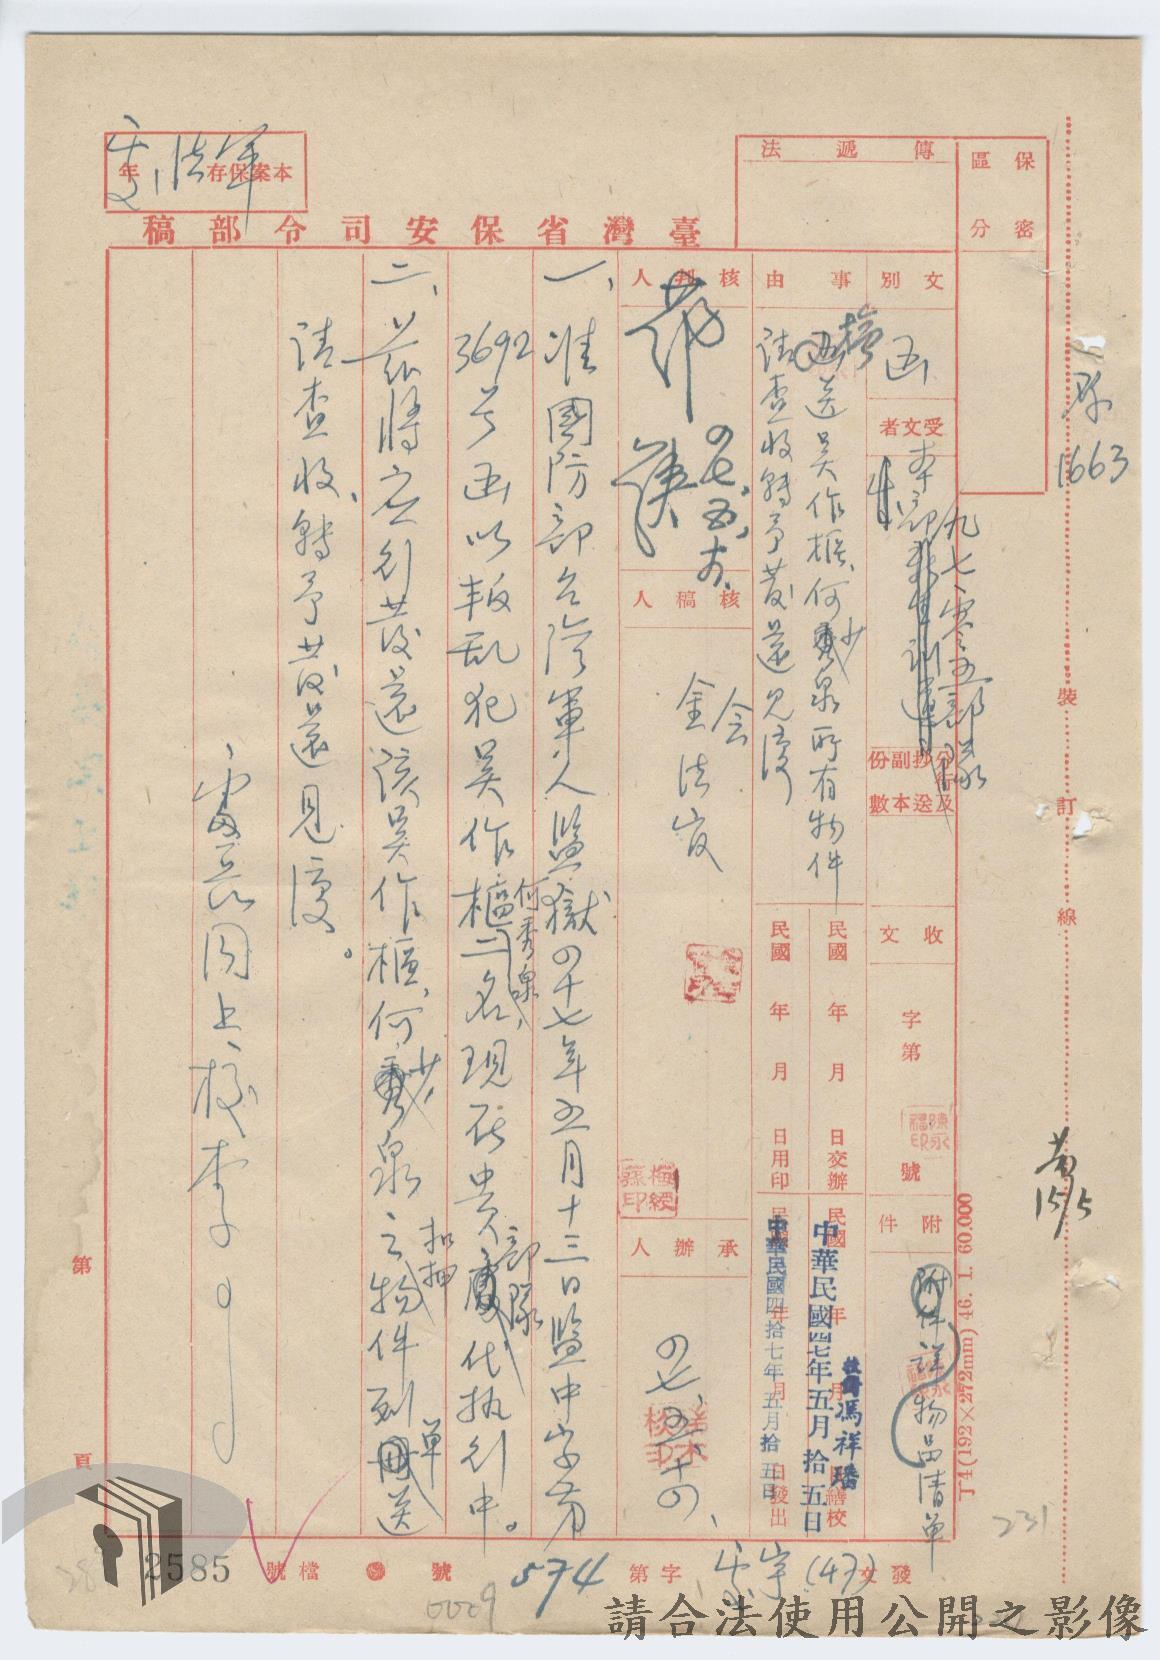 保密
區分
傳遞法
本案保存 年
臺灣省保安司令部稿
文別 函
受文者 本部
九七零五部隊
分行及抄送副本份數
收文 字第 號
附件 附件詳物品清單
事由 檢送吳作樞、何秀泉所有物件
請查收轉予發還見復
民國 年 月 日交辦
民國 年 月 日用印
中華民國四七年五月拾五日
中華民國四拾七年五月拾五日
校對馮祥璠
繕校
發出
核判人
四七、五、
核稿人
金法官
会
承辦人
四七、五、十四、
一、准國防部台灣軍人監獄四十七年五月十三日監中字第
3692号函以叛乱犯吳作樞何秀泉二名,現在貴部隊代执行中。
二、茲將应行發還該吳作樞、何秀泉扣押之物件列單送
請查收,轉予發還見復。
處長周上校李
發文 (47) 字第 574 號
檔號
2585
0009
231
1663
裝訂線
第 頁
T4(192×272mm) 46. 1. 60.000
請合法使用公開之影像